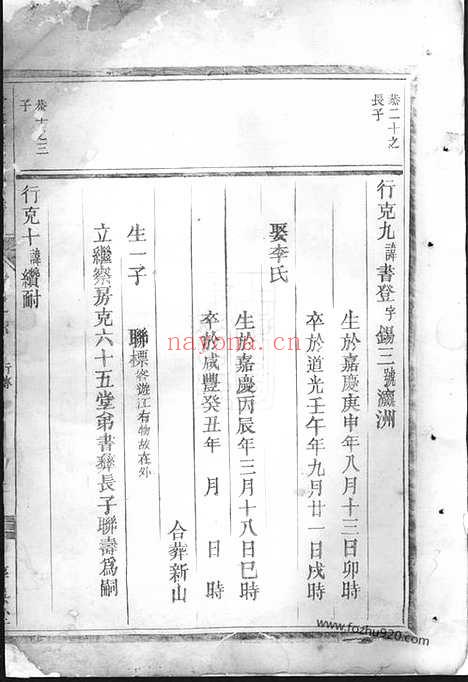 恭二十之
長子
行克九諱書登字錫三號瀛洲
生於嘉慶庚申年八月十三日卯時
卒於道光壬午年九月廿一日戌時
娶李氏
生於嘉慶丙辰年三月十八日巳時
卒於咸豐癸丑年 月 日 時
合葬新山
生一子 聯標客遊江右物故在外
立繼察房克六十五堂弟書彝長子聯壽為嗣
恭十之三
子
行克十諱纘耐
nayona.cn
www.fozhu920.com